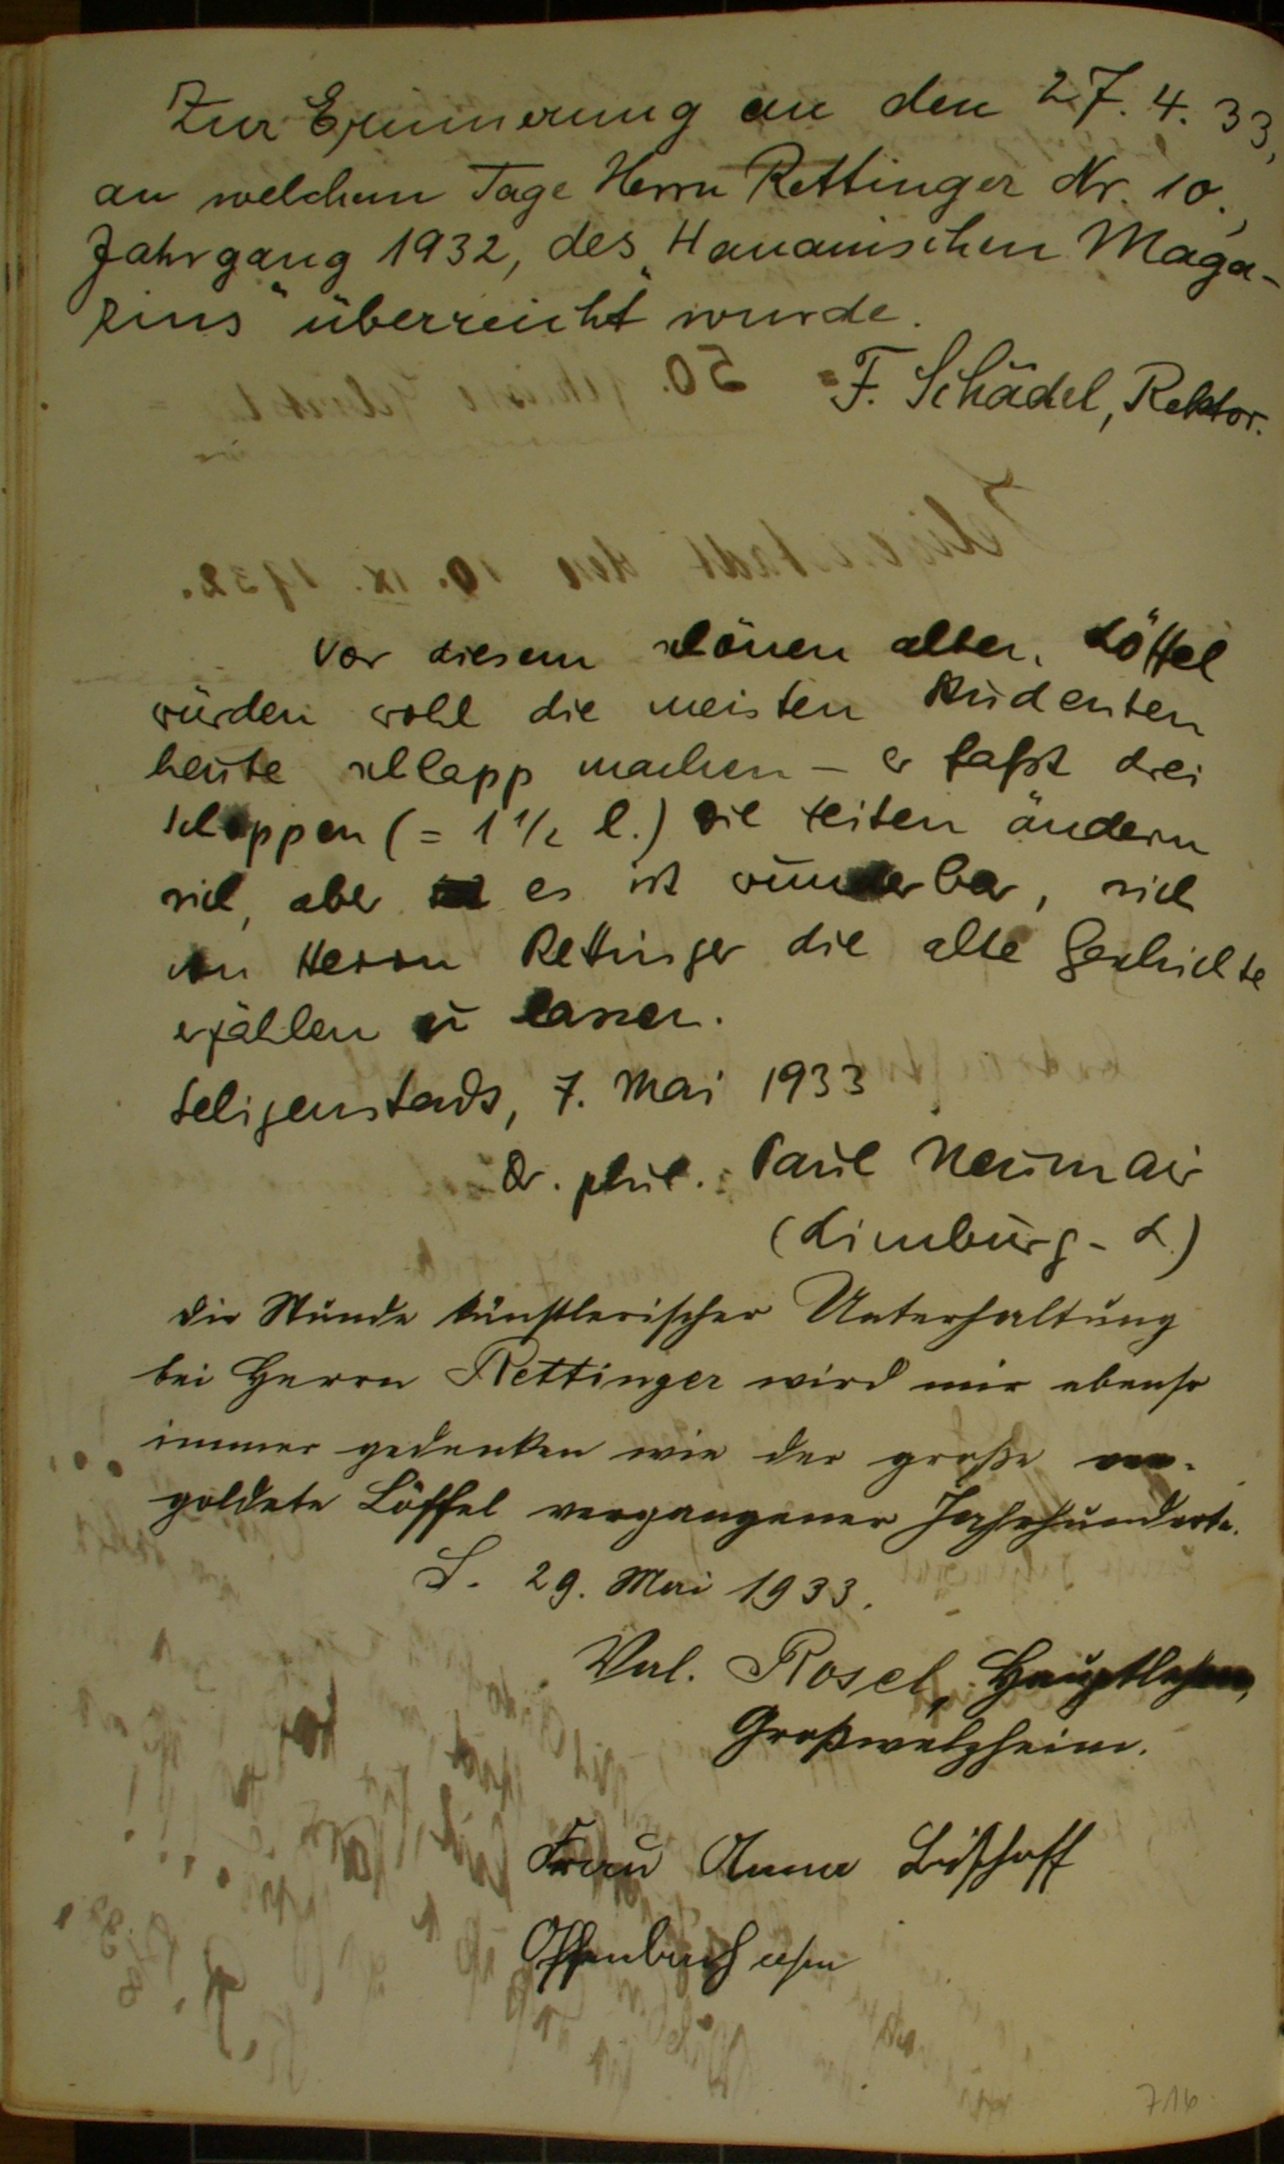 Zur Erinnerung an den 27. 4. 33,
an welchem Tage Herrn Rettinger Nr. 10,
Jahrgang 1932, des „Hanauischen Maga-
zins“ überreicht wurde.
F. Schädel, Rektor.
Vor diesem schönen alten Löffel
würden wohl die meisten Studenten
heute schlapp machen – er faßt drei
Schoppen (= 1 1/2 l.) Die Zeiten ändern
sich, aber es ist wunderbar, sich
von Herrn Rettinger die alte Geschichte
erzählen zu lassen.
Seligenstadt, 7. Mai 1933
Dr. phil. Paul Neumair
(Limburg - L.)
Die Stunde künstlerischer Unterhaltung
bei Herrn Rettinger wird mir ebenso
immer gedenken wie der große ver-
goldete Löffel vergangener Jahrhunderte.
S. 29. Mai 1933.
Val. Rosel, Hauptlehrer,
Großwelzheim.
Frau Anna Bischoff
Offenbach
716